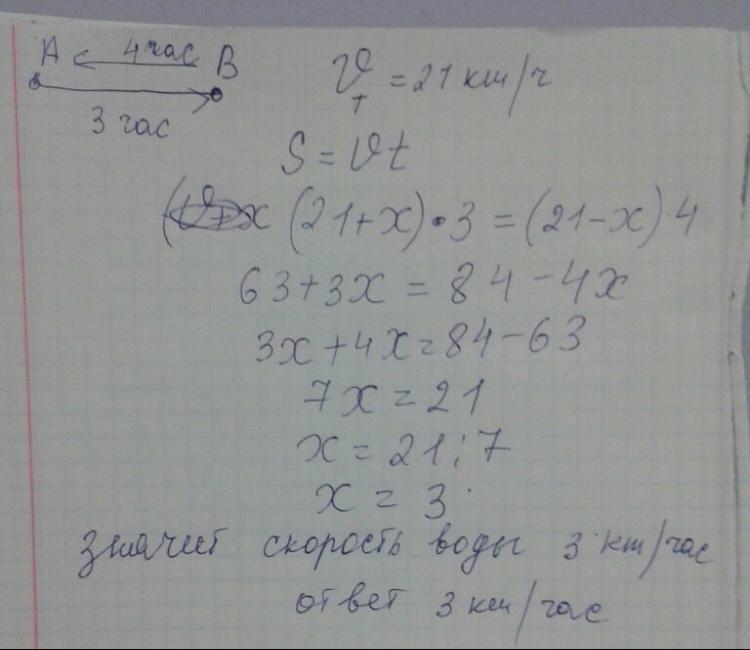 A 4час B
3 час
V т = 21 км/ч
S = Vt
x (21+x)•3 = (21-x)·4
63+3x = 84-4x
3x+4x=84-63
7x = 21
x = 21:7
x = 3
значит скорость воды 3 км/час
ответ 3 км/час